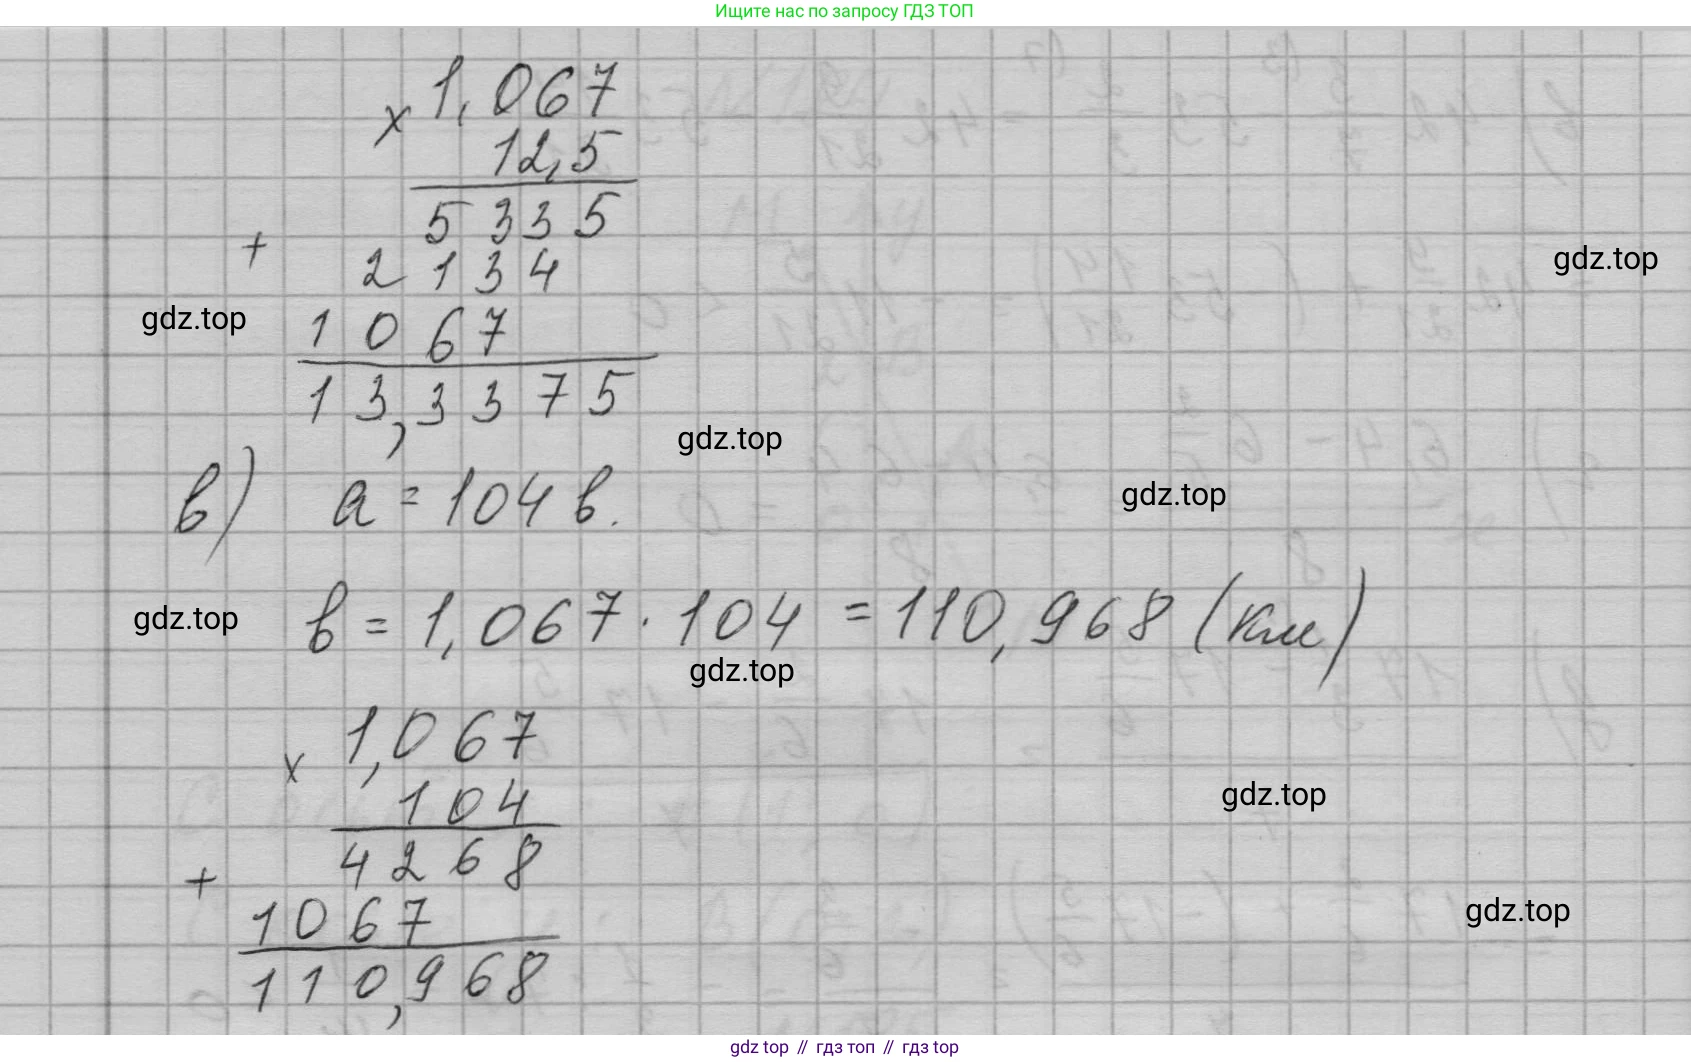 Ищите нас по запросу ГДЗ ТОП
× 1,067
12,5
5335
+ 2134
gdz.top
gdz.top
1067
13,3375
gdz.top
в) a = 104 в.
gdz.top
gdz.top
в = 1,067 · 104 = 110,968 (км)
gdz.top
× 1,067
104
gdz.top
4268
+ 1067
gdz.top
110,968
gdz top // гдз топ // гдз top